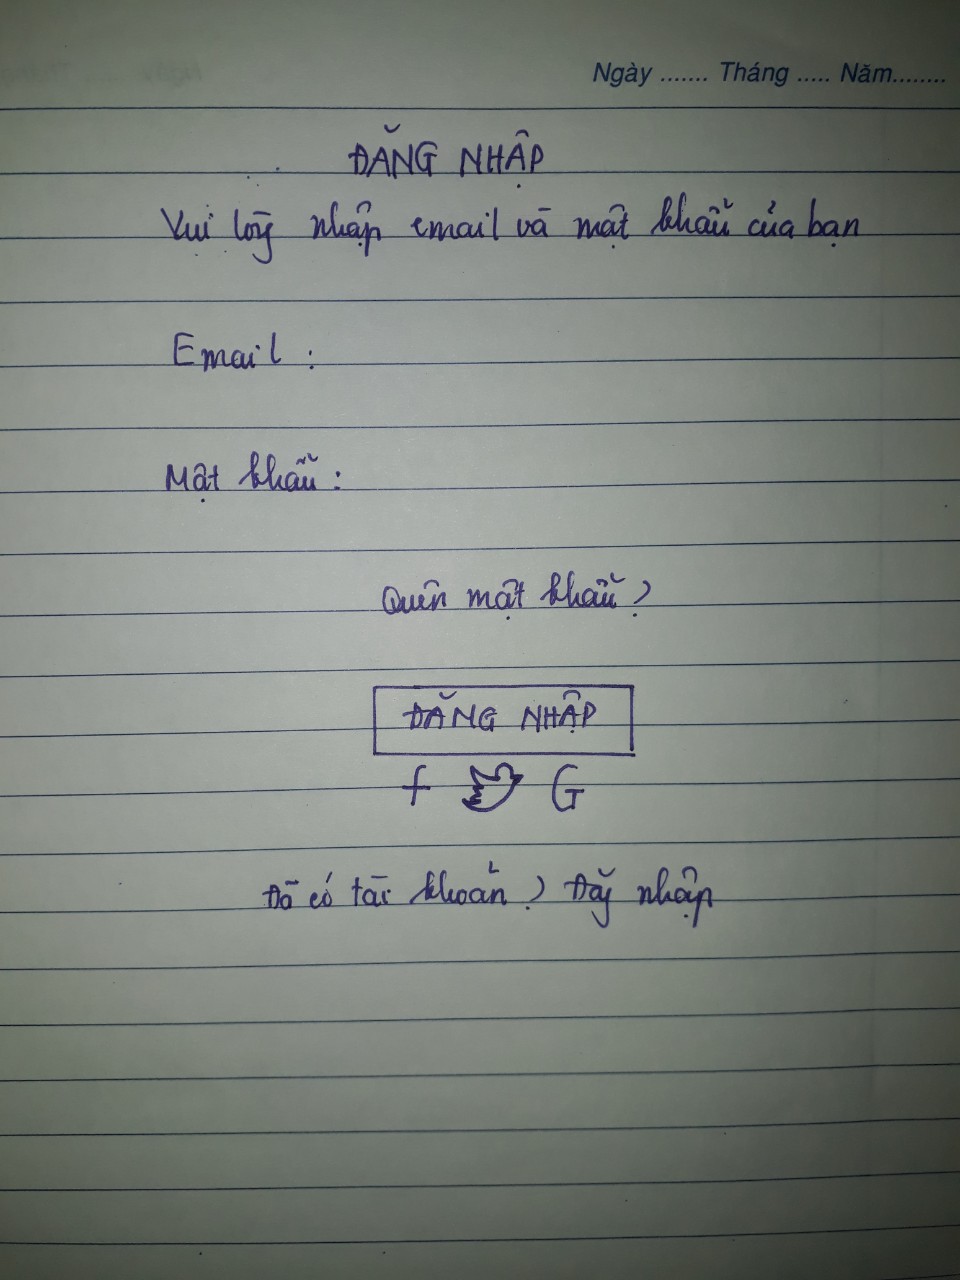 Ngày ....... Tháng ..... Năm........
ĐĂNG NHẬP
Vui lòng nhập email và mật khẩu của bạn
Email :
Mật khẩu :
Quên mật khẩu ?
ĐĂNG NHẬP
f G
Đã có tài khoản ? Đăng nhập